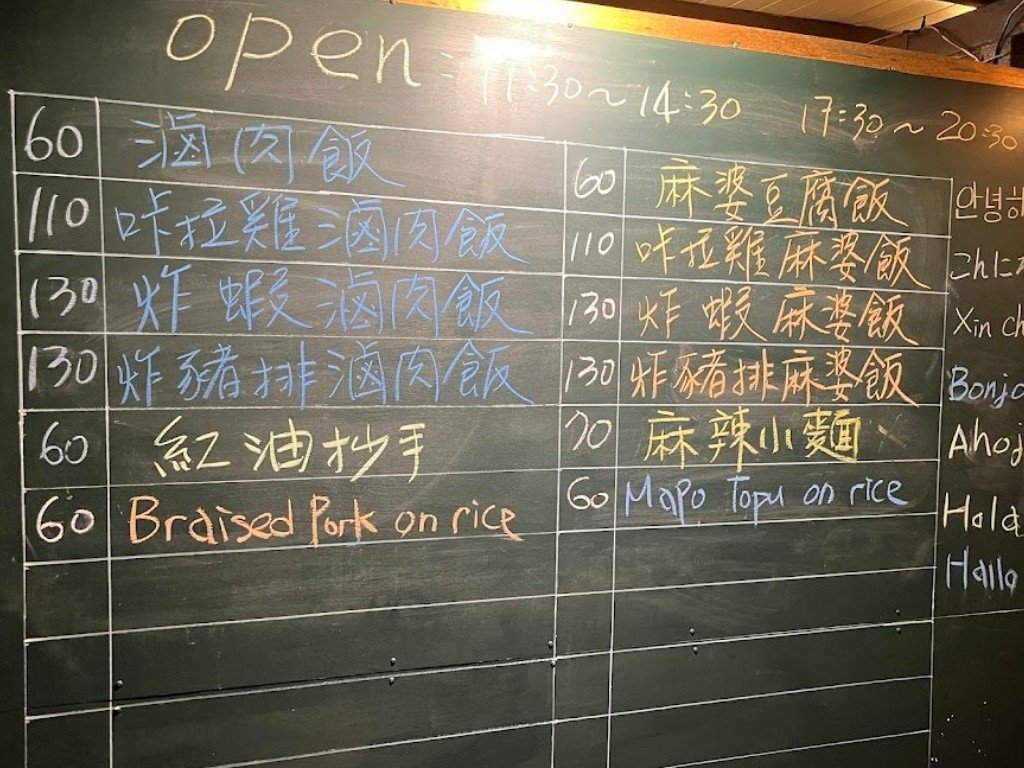 open: 11:30~14:30 17:30~20:30
60 滷肉飯
110 咔拉雞滷肉飯
130 炸蝦滷肉飯
130 炸豬排滷肉飯
60 紅油抄手
60 Braised Pork on rice
60 麻婆豆腐飯
110 咔拉雞麻婆飯
130 炸蝦麻婆飯
130 炸豬排麻婆飯
70 麻辣小麵
60 Mapo Topu on rice
안녕하
こんに
Xin ch
Bonjo
Ahoj
Hola
Hallo